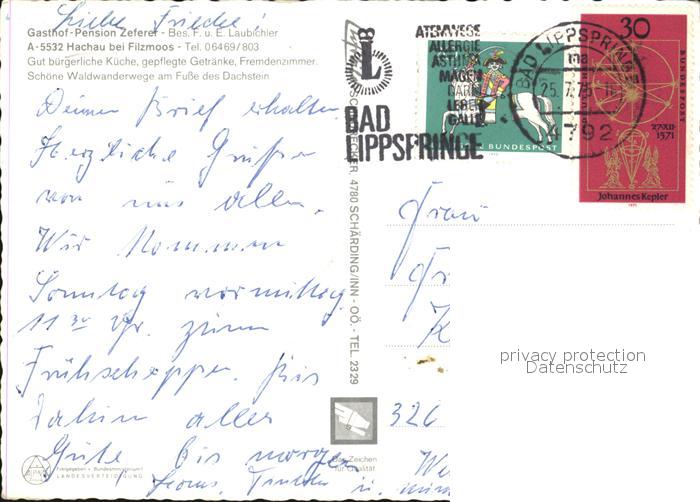 Liebe Friede!
Gasthof-Pension Zeferer - Bes. F. u. E. Laubichler
A-5532 Hachau bei Filzmoos - Tel. 06469/803
Gut bürgerliche Küche, gepflegte Getränke, Fremdenzimmer.
Schöne Waldwanderwege am Fuße des Dachstein
Deinen Brief erhalten
Herzliche Grüße
von uns allen.
Wir kommen
Sonntag vormittag
11 30 Uhr. zum
Frühschoppen. Bis
dahin alles
Gute bis morgen
Freigegeben v. Bundesministerium f.
LANDESVERTEIDIGUNG
4780 SCHÄRDING/INN - OÖ. - TEL. 2329
ATEMWEGE
ALLERGIE
ASTHMA
MAGEN
DARM
LEBER
GALLE
L
BAD
LIPPSPRINGE
BUNDESPOST
BAD LIPPSPRINGE
ma
25.7.75
4792
30
BUNDESPOST
27.XII.
1571
Johannes Kepler
1971
Frau
326
Das Zeichen
für Qualität
privacy protection
Datenschutz